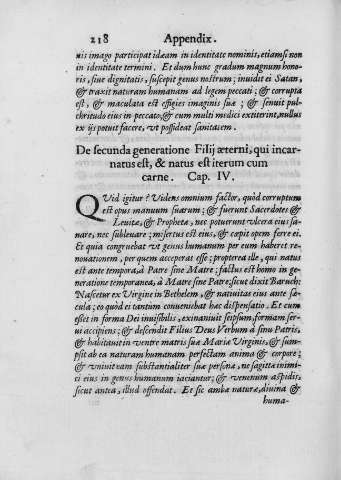 218 Appendix.
nis imago participat idæam in identitate nominis, etiamsi non
in identitate termini. Et dum hunc gradum magnum hono-
ris, siue dignitatis, suscepit genus nostrum; inuidit ei Satan,
& traxit naturam humanam ad legem peccati; & corrupta
est, & maculata est effigies imaginis suæ; & senuit pul-
chritudo eius in peccato, & cum multi medici extiterint, nullus
ex ijs potuit facere, vt possideat sanitatem.
De secunda generatione Filij æterni, qui incar-
natus est, & natus est iterum cum
carne. Cap. IV.
QVid igitur? Videns omnium factor, quòd corruptum
est opus manuum suarum; & fuerunt Sacerdotes &
Leuitæ, & Prophetæ, nec potuerunt vlcera eius sa-
nare, nec subleuare; misertus est eius, & cœpit opem ferre ei.
Et quia congruebat vt genus humanum per eum haberet re-
nouationem, per quem acceperat esse; propterea ille, qui natus
est ante tempora, à Patre sine Matre; factus est homo in ge-
neratione temporanea, à Matre sine Patre; sicut dixit Baruch:
Nascetur ex Virgine in Bethelem, & natiuitas eius ante sæ-
cula; eo quòd ei tantùm conueniebat hæc dispensatio. Et cum
esset in forma Dei inuisibilis, exinaniuit seipsum, formam ser-
ui accipiens; & descendit Filius Deus Verbum à sinu Patris,
& habitauit in ventre matris suæ Mariæ Virginis, & sum-
psit ab ea naturam humanam perfectam animo & corpore;
& vniuit eam substantialiter suæ personæ, ne sagittæ inimi-
ci eius in genus humanum iaciantur; & venenum aspidis,
sicut antea, illud offendat. Et sic ambæ naturæ, diuina &
huma-